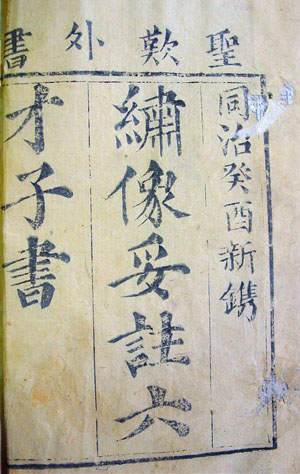 聖歎外書
同治癸酉新鐫
繡像妥註六
才子書